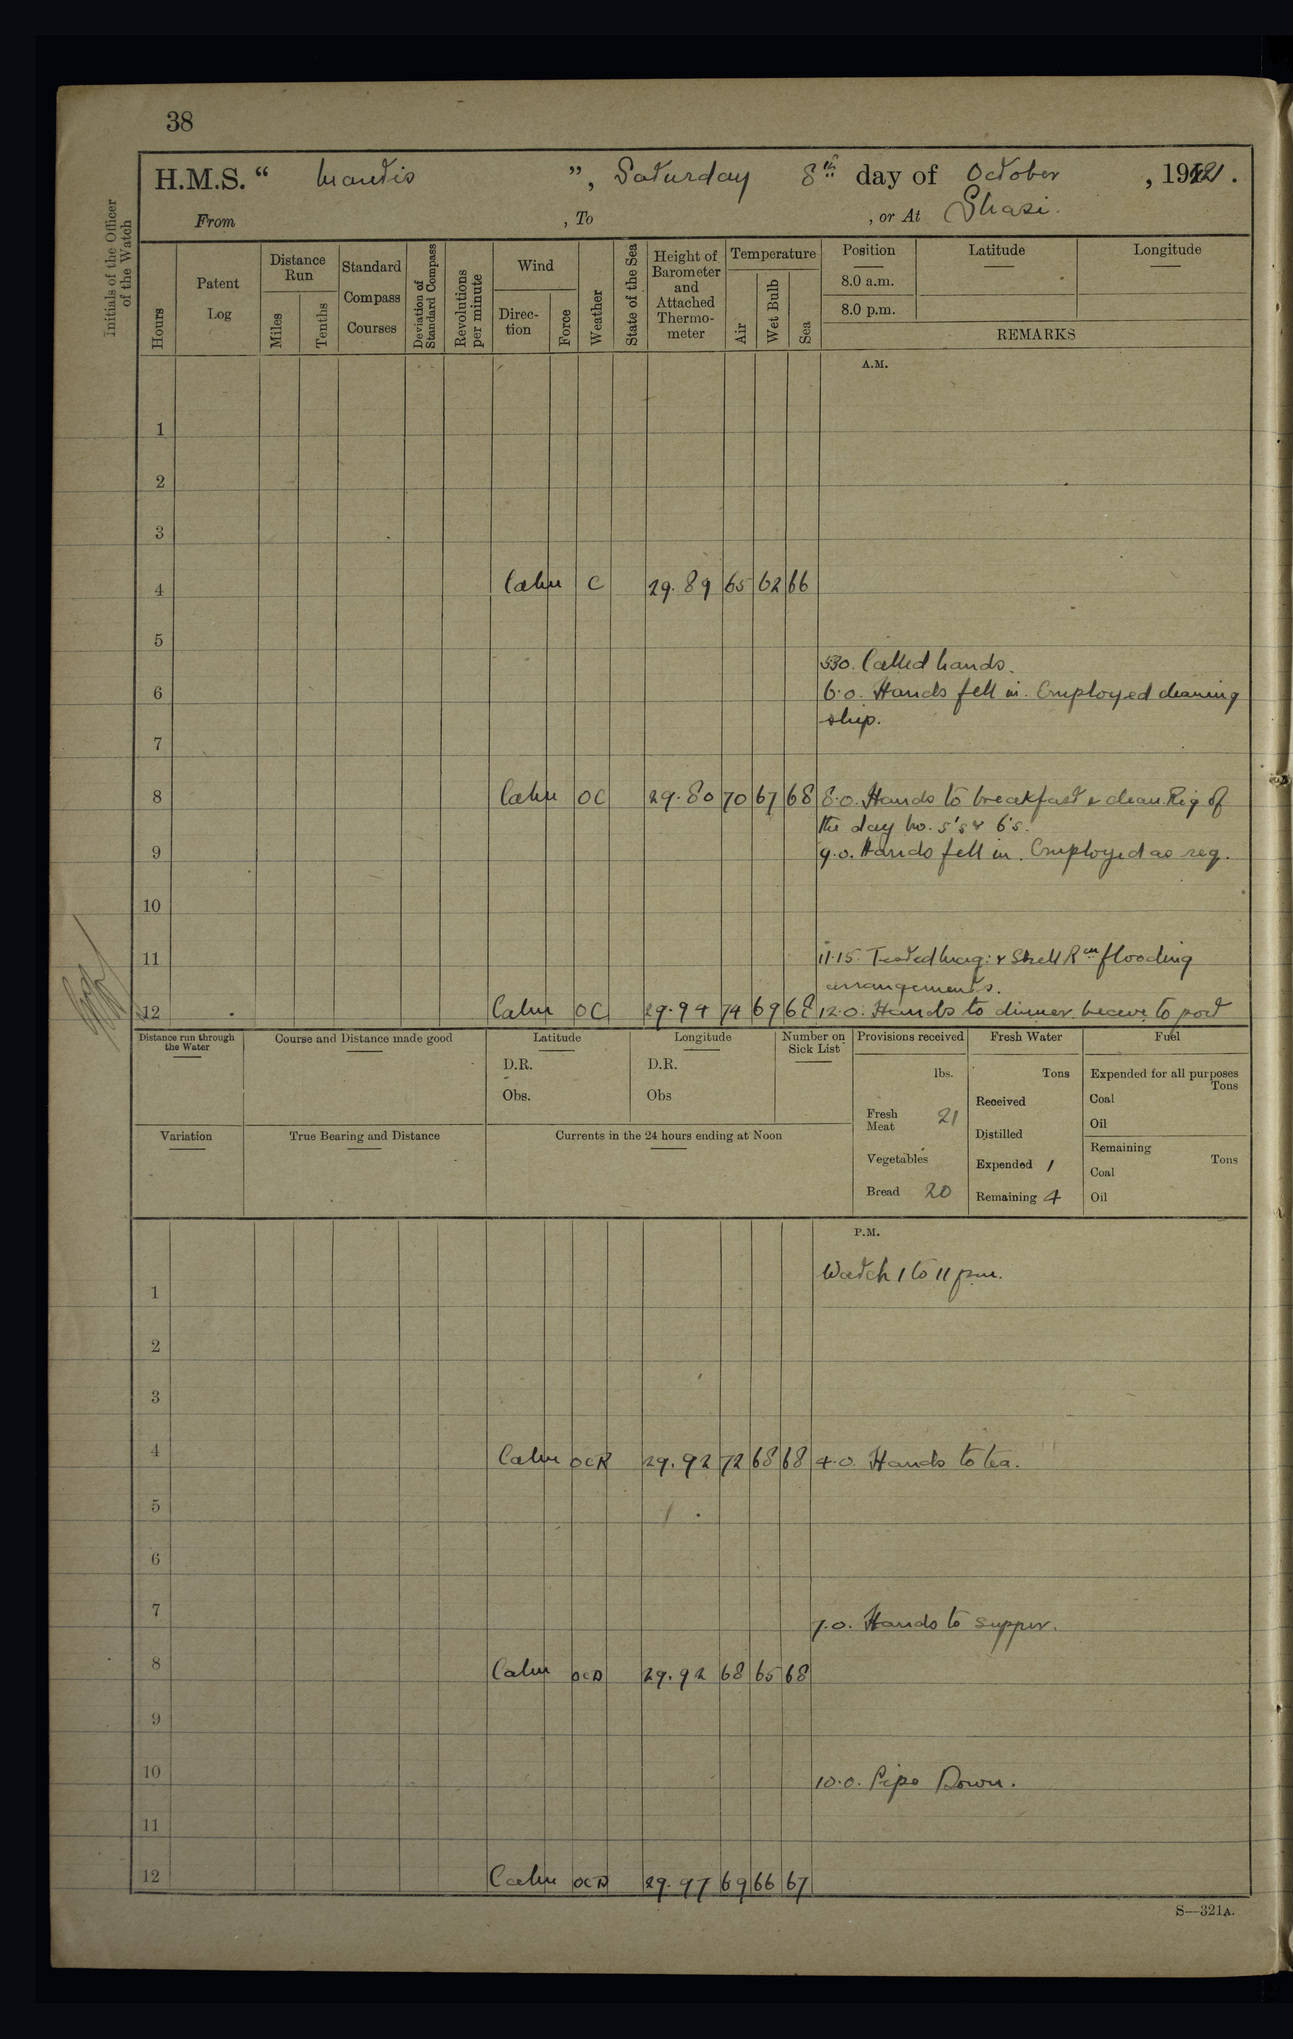 38
H.M.S. " Mantis ", Saturday 8th day of October, 1921.
From , To , or At Shasi.
Initials of the Officer of the Watch
Hours
Patent Log
Distance Run
Miles
Tenths
Standard Compass Courses
Deviation of Standard Compass
Revolutions per minute
Wind
Direction
Force
Weather
State of the Sea
Height of Barometer and Attached Thermometer
Temperature
Air
Wet Bulb
Sea
Position
8.0 a.m.
8.0 p.m.
Latitude
Longitude
REMARKS
A.M.
1
2
3
4 Calm C 29.89 65 62 66
5
530. Called hands.
6 6.0. Hands fell in. Employed cleaning
ship.
7
8 Calm OC 29.80 70 67 68 8.0. Hands to breakfast & clean. Rig of
the day No. 5's & 6's.
9 9.0. Hands fell in. Employed as req.
10
11 11.15. Tested Mag: & Shell Rm flooding
arrangements.
12 Calm OC 29.94 74 69 68 12.0. Hands to dinner. Leave to port
Distance run through the Water
Course and Distance made good
Latitude
D.R.
Obs.
Longitude
D.R.
Obs
Number on Sick List
Provisions received
lbs.
Fresh Meat 21
Vegetables
Bread 20
Fresh Water
Tons
Received
Distilled
Expended 1
Remaining 4
Fuel
Expended for all purposes
Tons
Coal
Oil
Remaining
Tons
Coal
Oil
Variation
True Bearing and Distance
Currents in the 24 hours ending at Noon
P.M.
Watch 1 to 11 pm.
1
2
3
4 Calm OCR 29.92 72 68 68 4.0. Hands to tea.
5
6
7 7.0. Hands to supper.
8 Calm OCD 29.92 68 65 68
9
10 10.0. Pipe Down.
11
12 Calm OCD 29.97 69 66 67
S—321A.